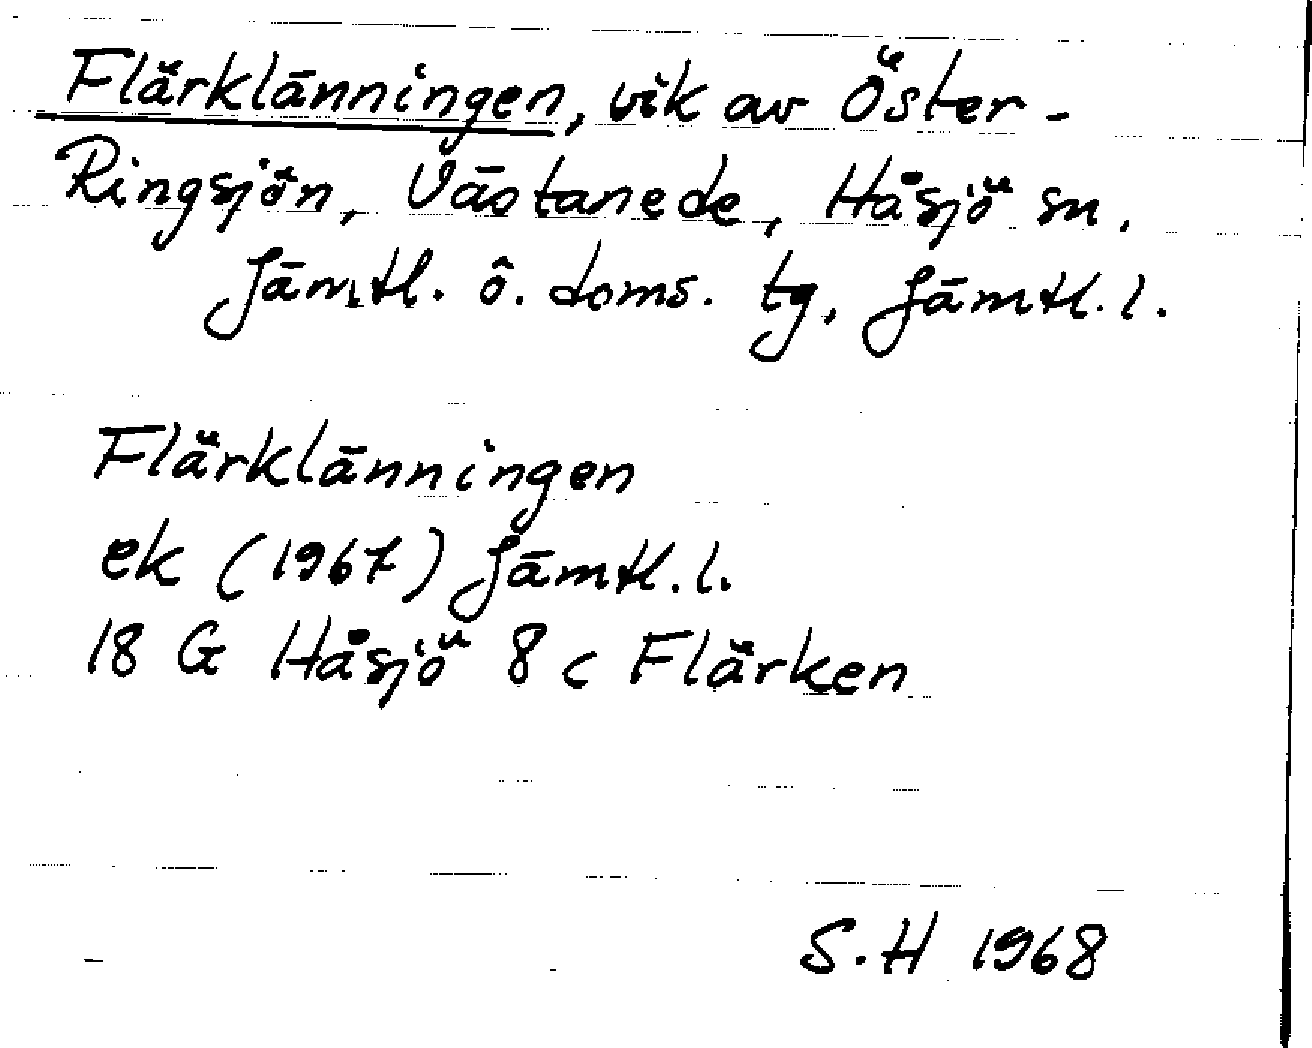 Flärklänningen, vik av Öster-
Ringsjön, Västanede, Håsjö sn.
Jämtl. ö. doms. tg, Jämtl. l.
Flärklänningen
ek (1967) Jämtl. l.
18 G Håsjö 8 c Flärken
S.H 1968